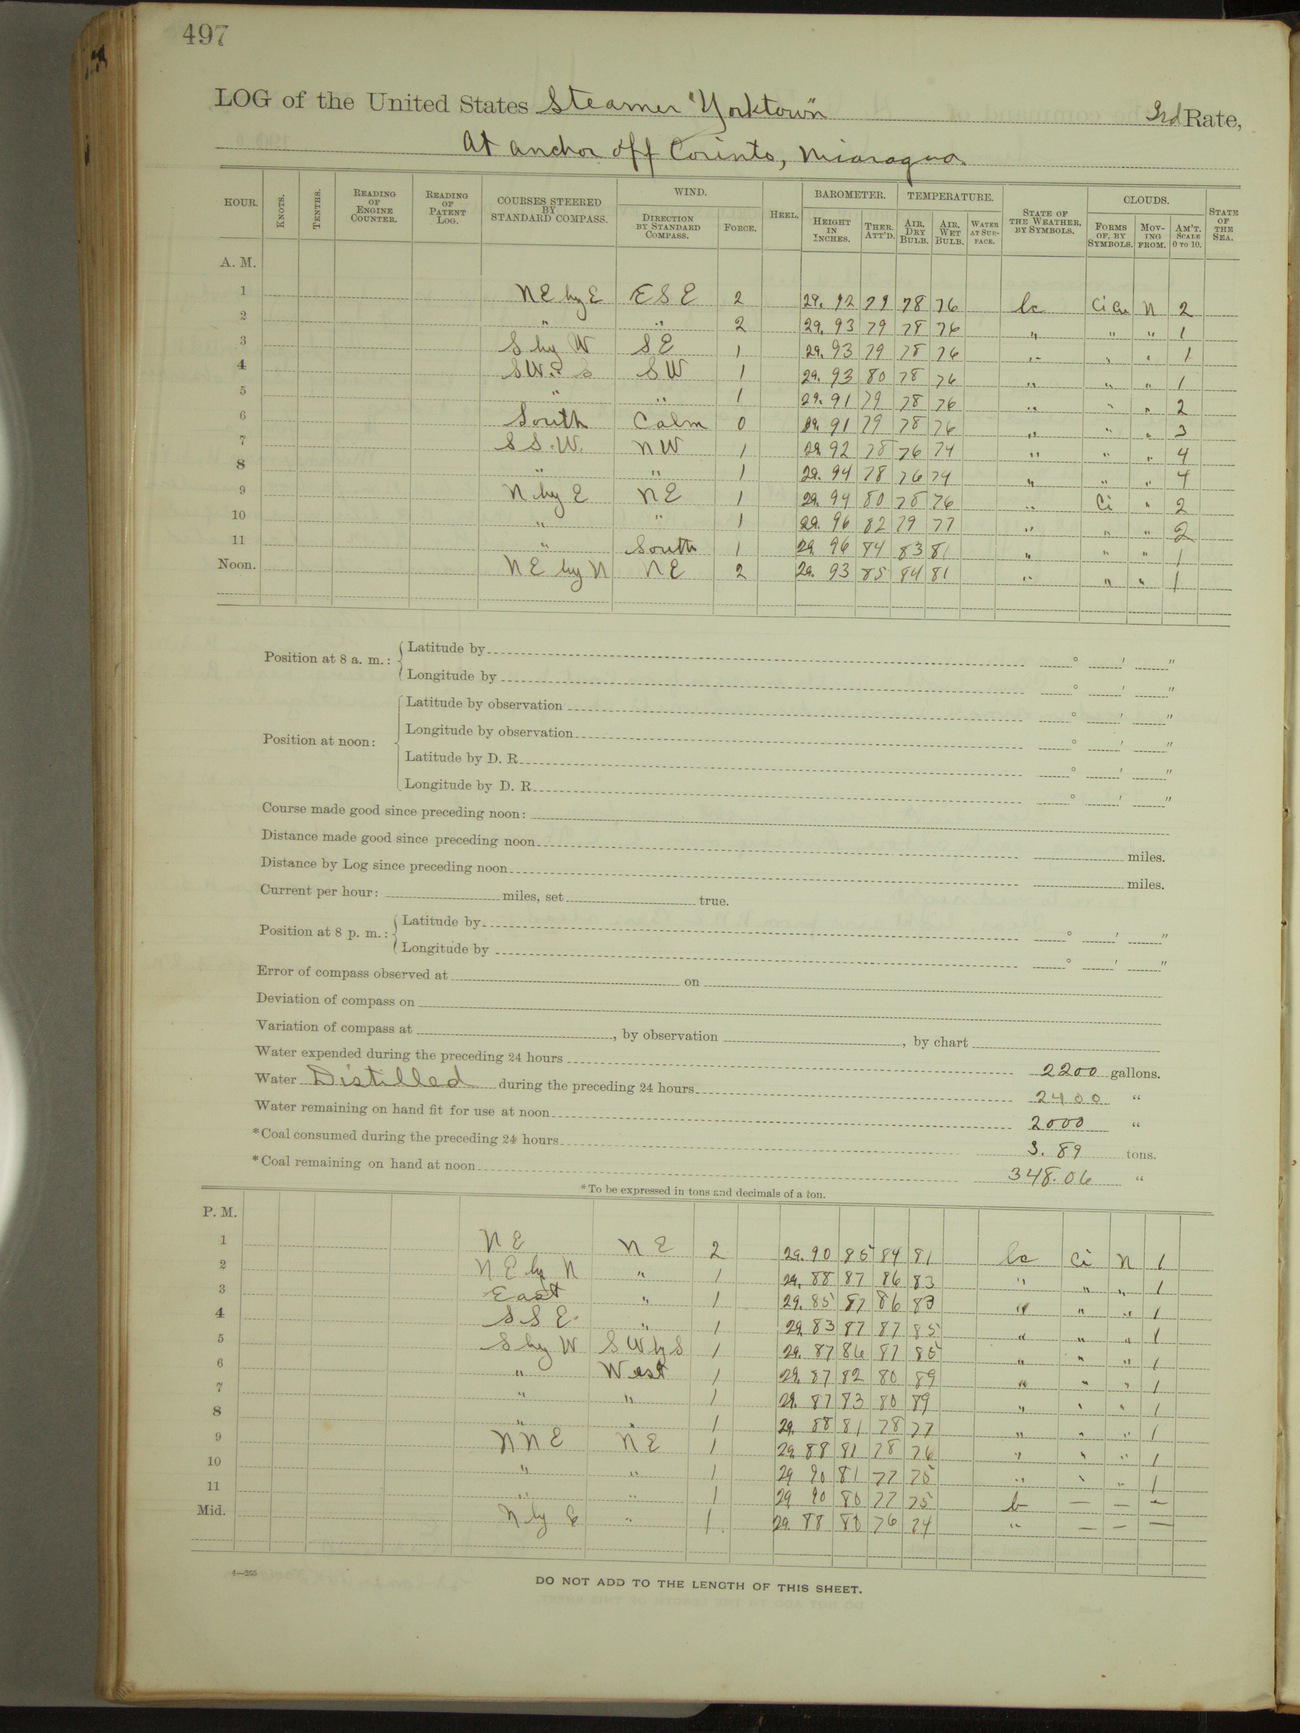 497
LOG of the United States Steamer "Yorktown" 3rd Rate,
At anchor off Corinto, Nicaragua.
HOUR. KNOTS. TENTHS. READING OF ENGINE COUNTER. READING OF PATENT LOG. COURSES STEERED BY STANDARD COMPASS. WIND. DIRECTION BY STANDARD COMPASS. FORCE. HEEL. BAROMETER. HEIGHT IN INCHES. THER. ATT'D. TEMPERATURE. AIR, DRY BULB. AIR, WET BULB. WATER AT SURFACE. STATE OF THE WEATHER, BY SYMBOLS. CLOUDS. FORMS OF, BY SYMBOLS. MOVING FROM. AM'T. SCALE 0 TO 10. STATE OF THE SEA.
A. M.
1 NE by E ESE 2 29.92 79 78 76 bc Ci Cu N 2
2 " " 2 29.93 79 78 76 " " " 1
3 S by W SE 1 29.93 79 78 76 " " " 1
4 SW. S SW 1 29.93 80 78 76 " " " 1
5 " " 1 29.91 79 78 76 " " " 2
6 South Calm 0 29.91 79 78 76 " " " 3
7 SS.W. NW 1 29.92 78 76 74 " " " 4
8 " " 1 29.94 78 76 74 " " " 4
9 N by E NE 1 29.94 80 78 76 " Ci " 2
10 " " 1 29.96 82 79 77 " " " 2
11 " South 1 29.96 84 83 81 " " " 1
Noon. NE by N NE 2 29.93 85 84 81 " " " 1
Position at 8 a. m.: Latitude by ° ' "
Longitude by ° ' "
Position at noon: Latitude by observation ° ' "
Longitude by observation ° ' "
Latitude by D. R. ° ' "
Longitude by D. R. ° ' "
Course made good since preceding noon:
Distance made good since preceding noon miles.
Distance by Log since preceding noon miles.
Current per hour: miles, set true.
Position at 8 p. m.: Latitude by ° ' "
Longitude by ° ' "
Error of compass observed at on
Deviation of compass on
Variation of compass at , by observation , by chart
Water expended during the preceding 24 hours 2200 gallons.
Water Distilled during the preceding 24 hours 2400 "
Water remaining on hand fit for use at noon 2000 "
*Coal consumed during the preceding 24 hours 3.89 tons.
*Coal remaining on hand at noon 348.06 "
*To be expressed in tons and decimals of a ton.
P. M.
1 NE NE 2 29.90 85 84 81 bc Ci N 1
2 NE by N " 1 29.88 87 86 83 " " " 1
3 East " 1 29.85 87 86 83 " " " 1
4 SSE. " 1 29.83 87 87 85 " " " 1
5 S by W SW by S 1 29.87 86 87 85 " " " 1
6 " West 1 29.87 82 80 89 " " " 1
7 " " 1 29.87 83 80 89 " " " 1
8 " " 1 29.88 81 78 77 " " " 1
9 NNE NE 1 29.88 81 78 76 " " " 1
10 " " 1 29.90 81 77 75 " " " 1
11 " " 1 29.90 80 77 75 b — — —
Mid. N by E " 1. 29.88 80 76 74 " — — —
4—255
DO NOT ADD TO THE LENGTH OF THIS SHEET.